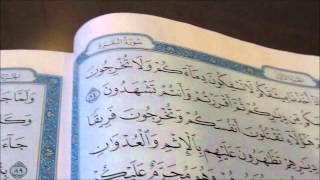 سُورَةُ البَقَرَةِ
لَا تَسْفِكُونَ دِمَاءَكُمْ وَلَا تُخْرِجُونَ
ثُمَّ أَقْرَرْتُمْ وَأَنتُمْ تَشْهَدُونَ ٨٤
هَٰؤُلَاءِ تَقْتُلُونَ أَنفُسَكُمْ وَتُخْرِجُونَ فَرِيقًا
دِيَٰرِهِمْ تَظَٰهَرُونَ عَلَيْهِم بِالْإِثْمِ وَالْعُدْوَٰنِ
وَهُوَ مُحَرَّمٌ عَلَيْكُمْ
وَلَمَّا
٨٩